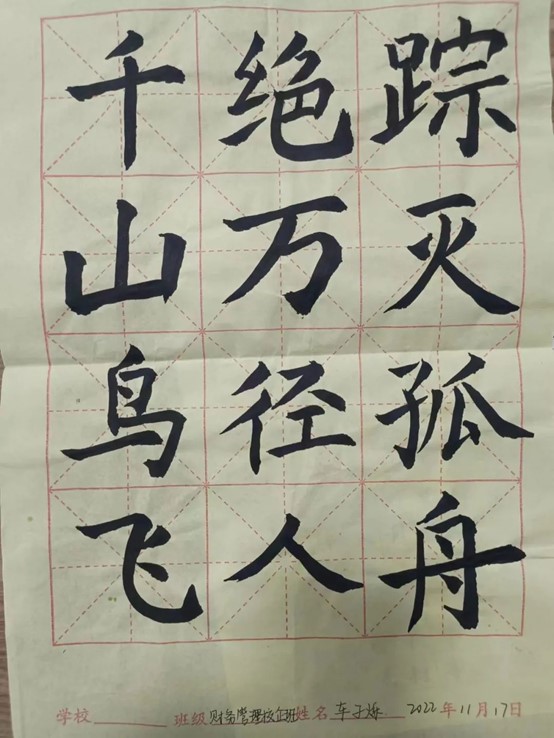 千山鸟飞
绝万径人
踪灭孤舟
学校 班级 财务管理校企班 姓名 车子烁 2022年11月17日